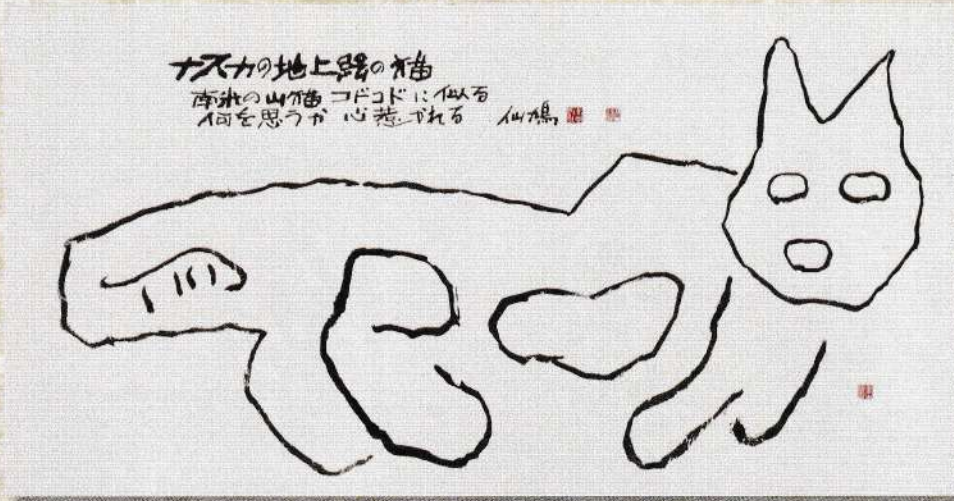 ナスカの地上絵の猫
南米の山猫 コドコドに似る
何を思うか 心惹かれる 仙鳩